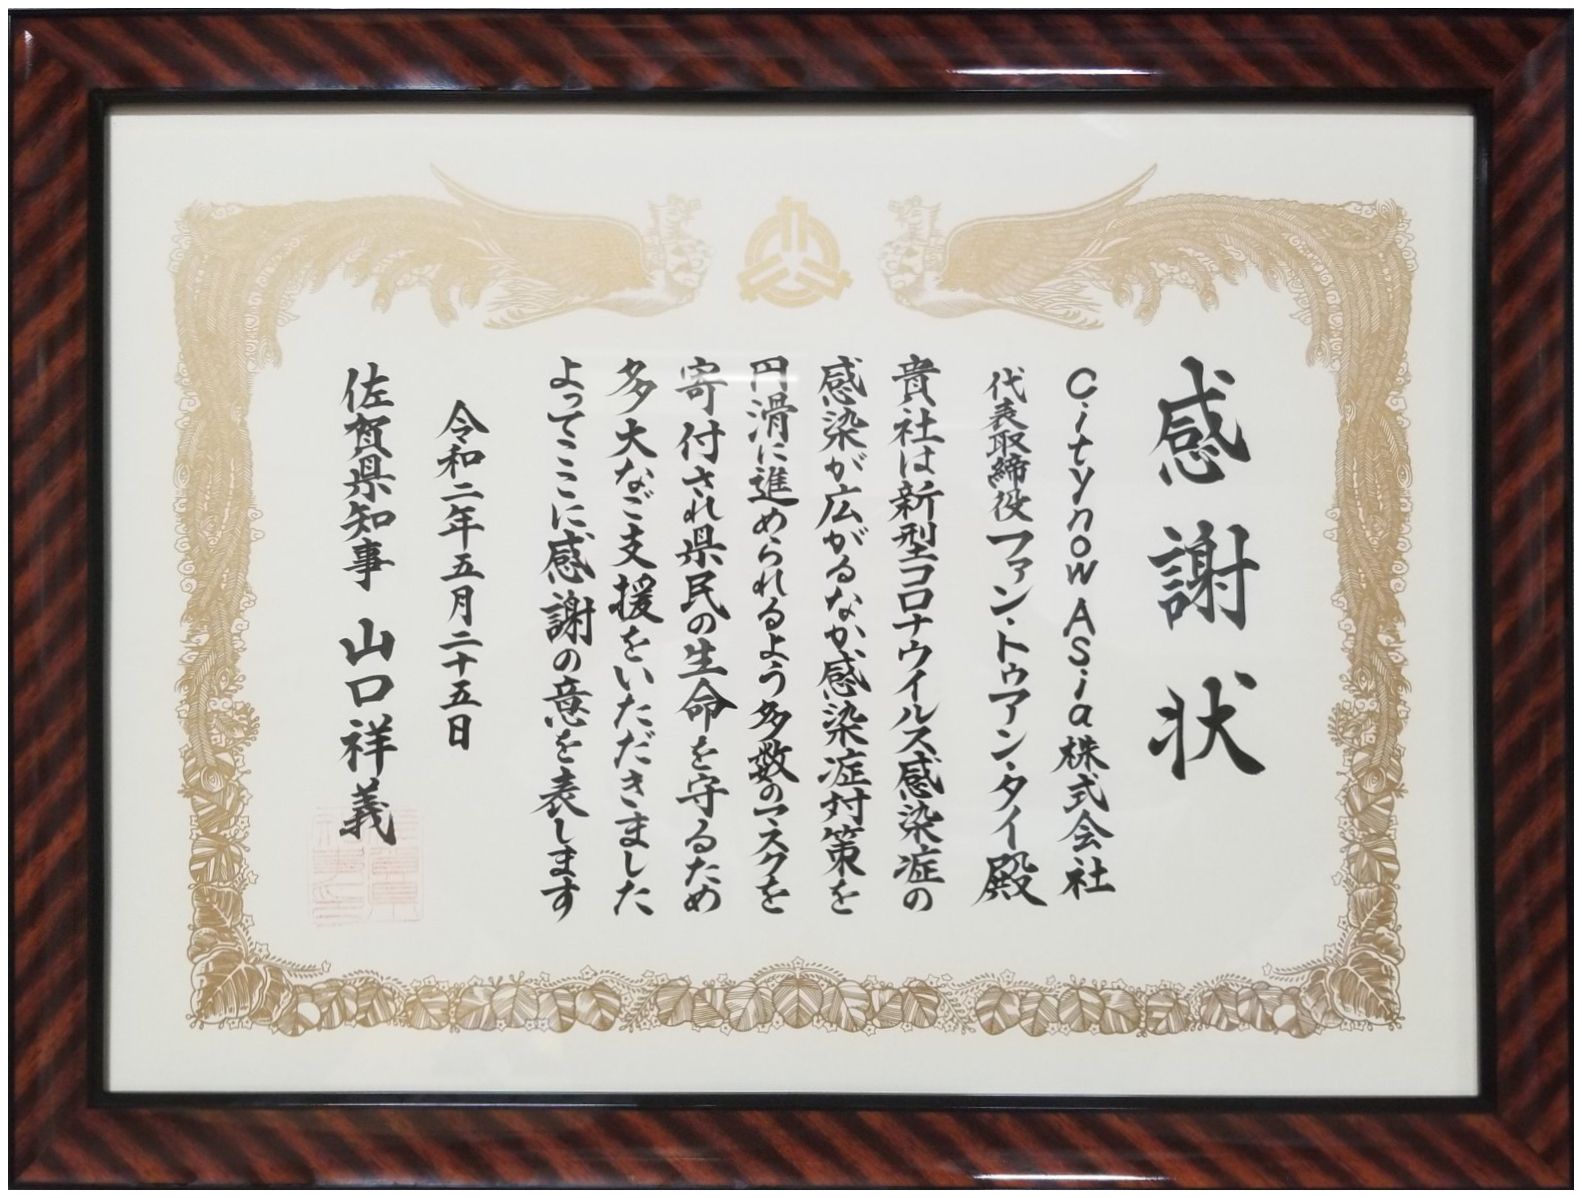 感謝状
Citynow Asia株式会社
代表取締役ファン・トゥアン・タイ殿
貴社は新型コロナウイルス感染症の
感染が広がるなか感染症対策を
円滑に進められるよう多数のマスクを
寄付され県民の生命を守るため
多大なご支援をいただきました
よってここに感謝の意を表します
令和二年五月二十五日
佐賀県知事 山口祥義